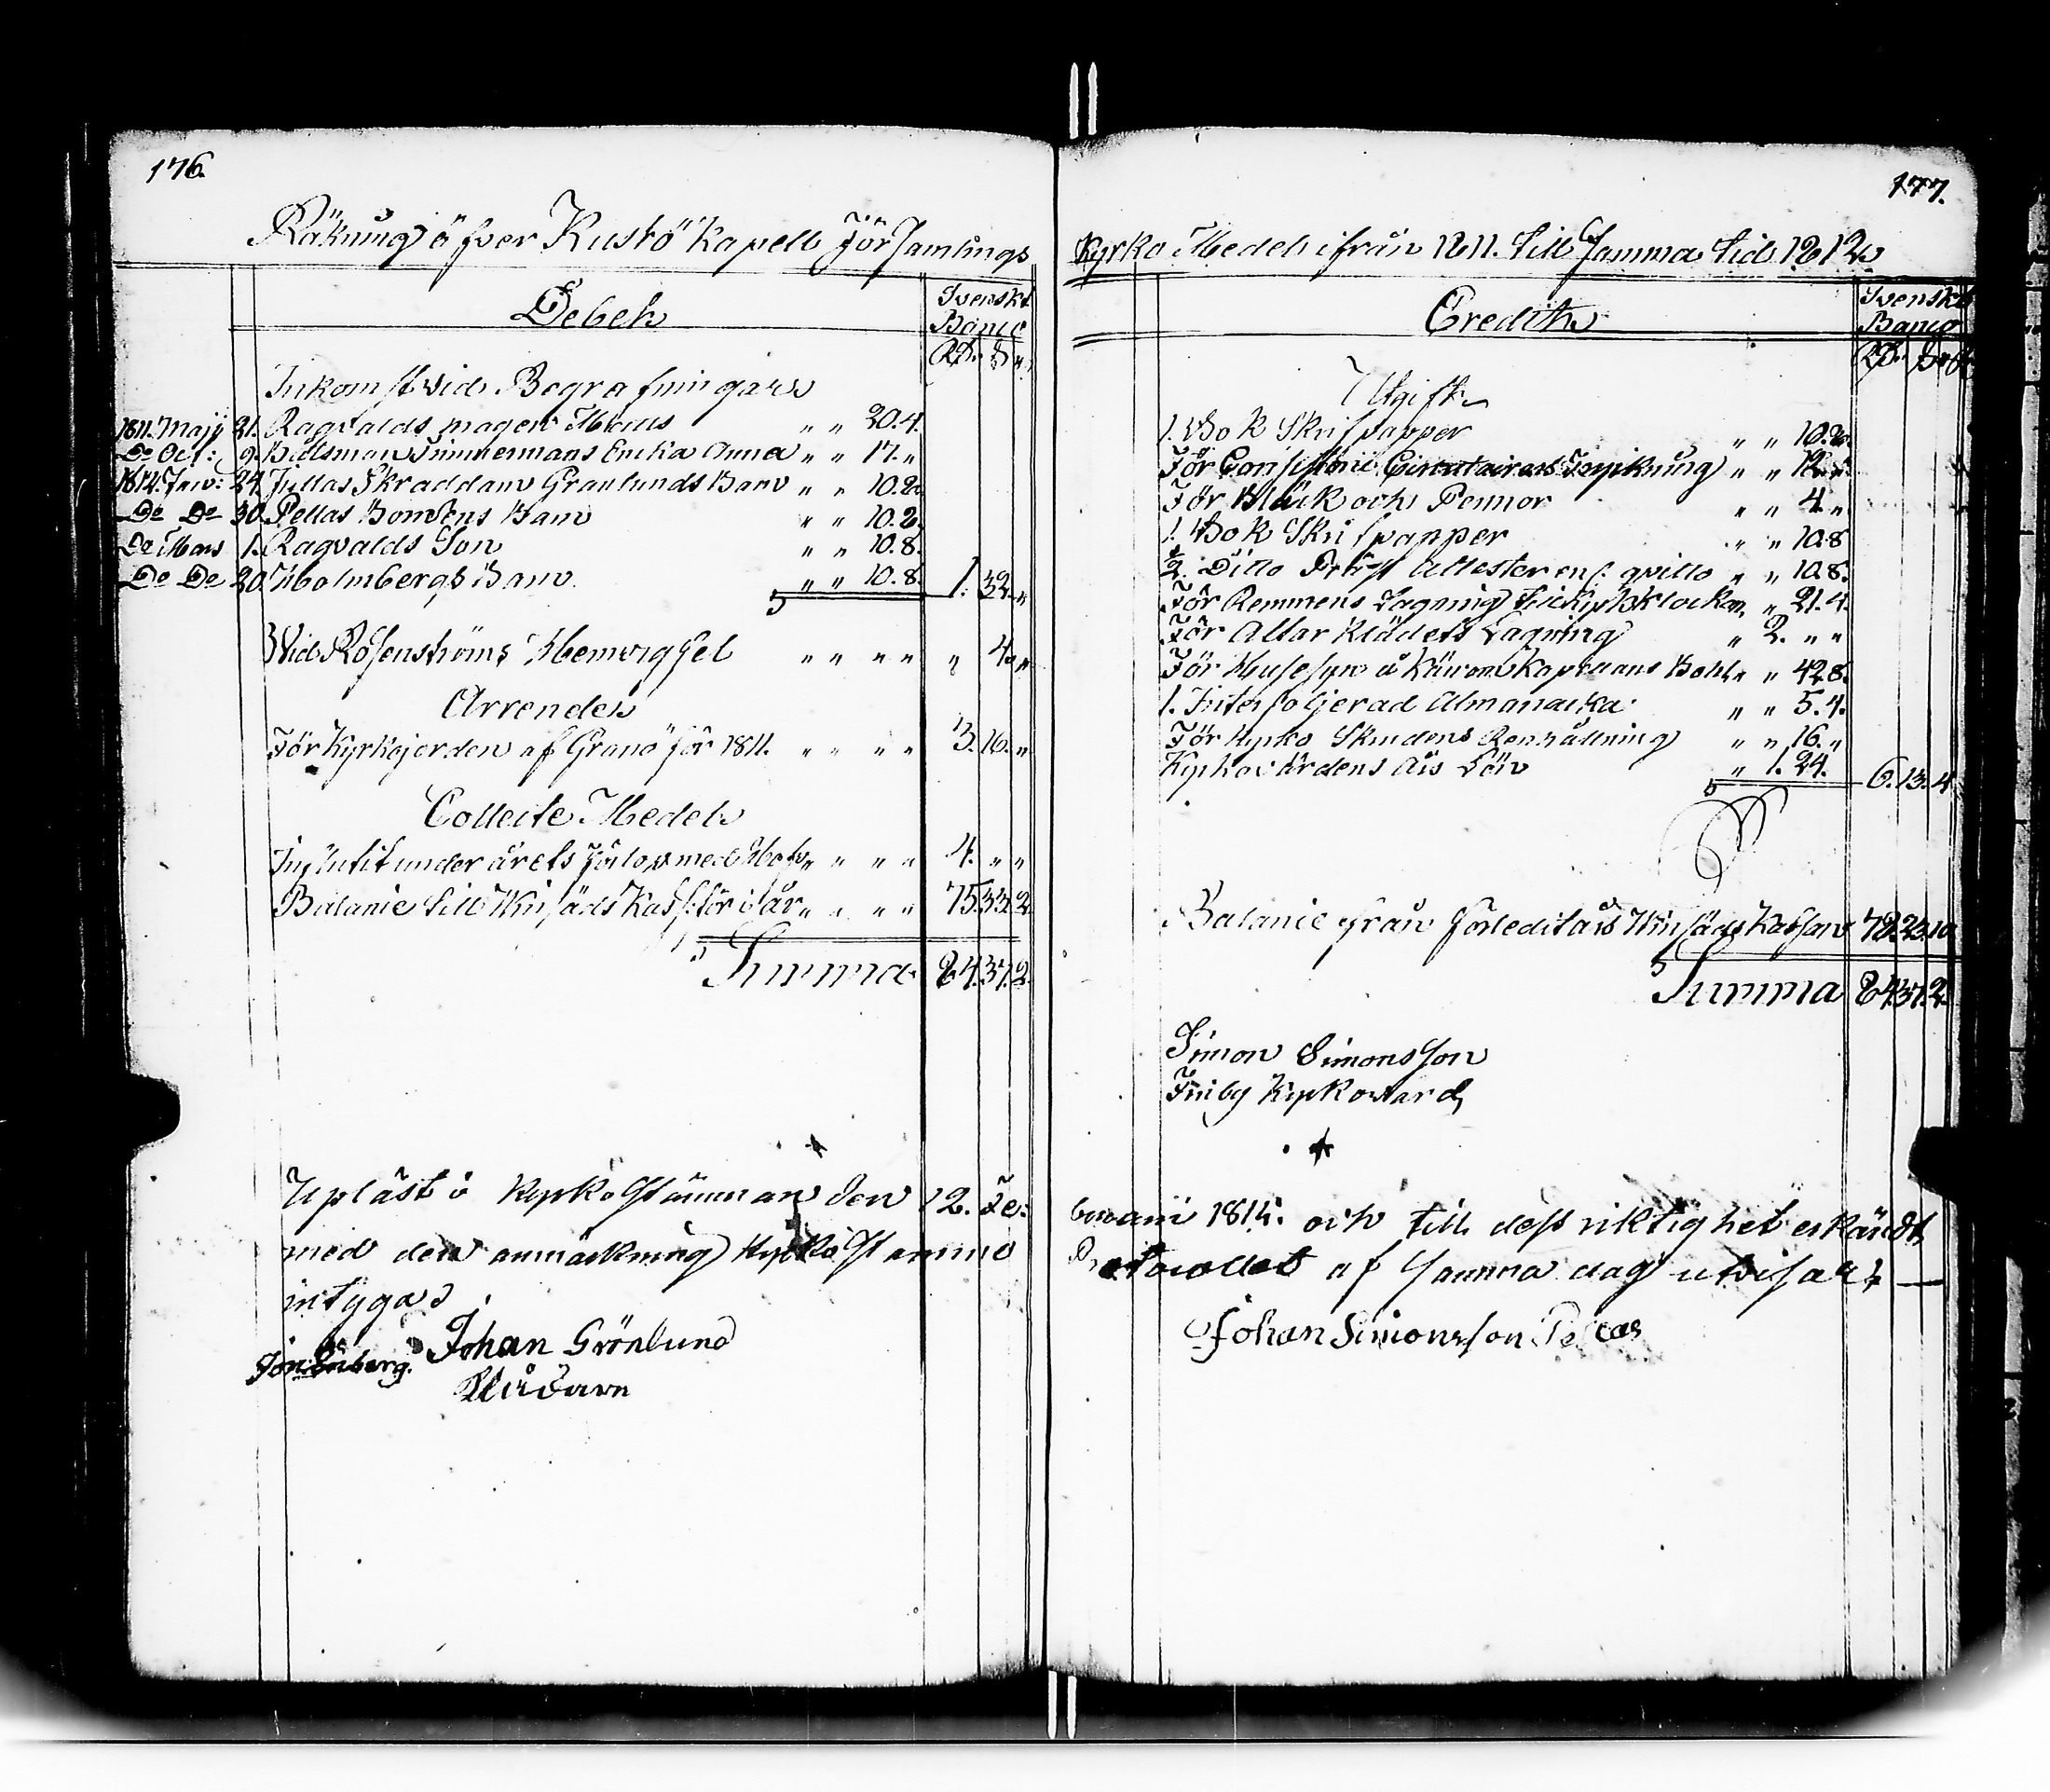 176.
Räkning öfver Kustö Kapell Församlings
Debet
Svenskt
Banco
Inkomst vid Begrafningar
1811. Maji 21. Ragvalds magen " " 20.4.
Do Oct: 9. Båtsman Timmermans Enka Anna " " 17. "
1812. Janv: 24. Jullas Skraddarn Granlunds Barn " " 10.8.
Do Do 30. Pellas Bondens Barn " " 10.8.
Do Mars 1. Ragvalds Son " " 10.8.
Do Do 20. Holmbergs Barn " " 10.8. 1. 32. "
Vid Rosenströms " " " " " 4. "
Arrende
För Kyrkojorden af Granö för 1811. " " " " 3. 16. "
Collecte Medel
Influtit under årets med " " " " 4. " "
Balance till för i år " " " " 75.33.2.
Summa 84.37.2.
Upläst i Kyrko Stämman den 12. Fe:
med den anmärkning Kyrko Stämmo
intygar
Johan Grönlund
Klådarn
177.
Kyrko Medel ifrån 1811. till samma tid 1812
Credit
Svenskt
Banco
Utgift
1. Bok Skrifpapper " " 10.8.
För Consistorii Circulairers " " 12. "
För Bläck och Pennor " " 4. "
1. Bok Skrifpapper " " 10.8
2. Ditto Attester " " 10.8.
För Remmens Lagning till " " 21.4.
För Altar Klädets Lagning " 2. " "
För Husesyn å Kapellans Bohl " " 42.8.
1. Interfolierad Almanacka " " 5.4.
För Kyrko Skrudens Renhållning " " 16. "
Kyrkovärdens Års Lön " 1. 24. 6.13.4
Balance från 78.23.10
Summa 84.37.2.
Simon Simonsson
Kyrkovärd
bruarii 1814. och till dess riktighet erkändt,
Protocollet af samma dag utvisar
Johan Simonsson